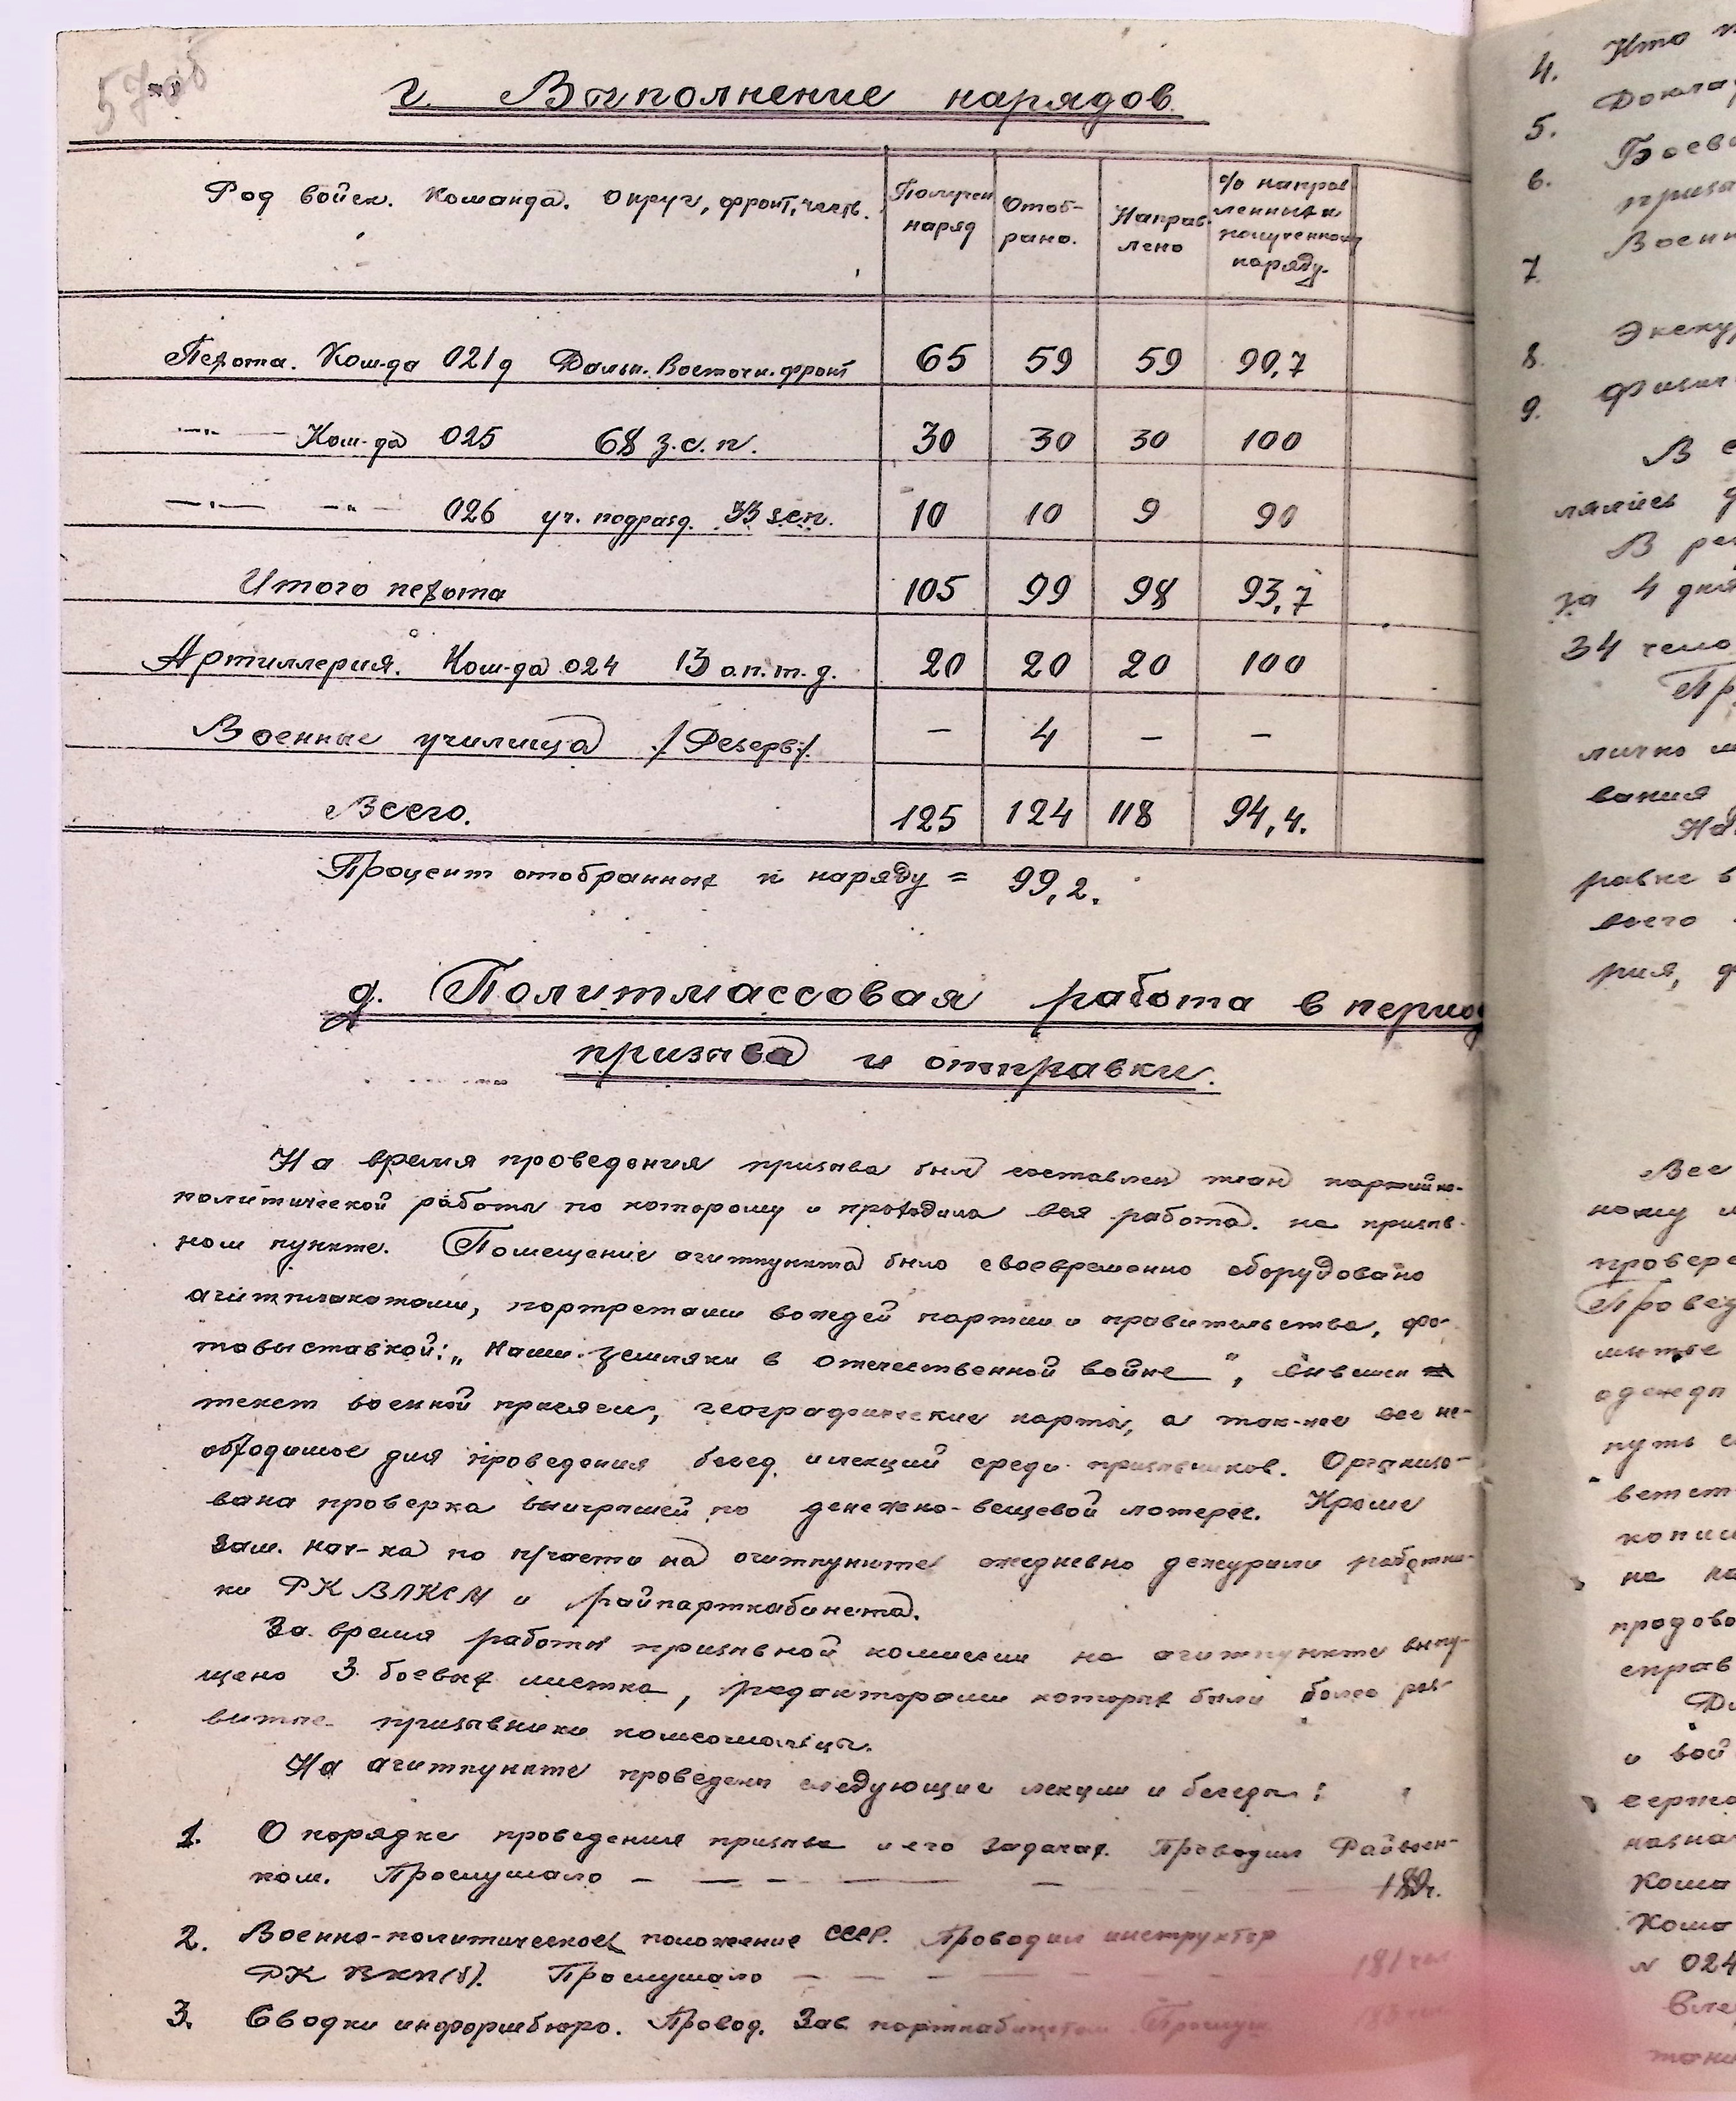 57об
г. Выполнение нарядов.
Род войск. Команда. Округ, фронт, часть. Получен наряд Отоб-рано. Направ-лено % направ ленных к полученному наряду.
Пехота. Ком-да 021д Дальн. Восточн. фронт 65 59 59 90,7
—"— Ком-да 025 68 з.с.п. 30 30 30 100
—"— —"— 026 уч. подразд. 33 зсп. 10 10 9 90
Итого пехота 105 99 98 93,7
Артиллерия. Ком-да 024 13 о.п.т.д. 20 20 20 100
Военные училища /Резерв/. — 4 — —
Всего. 125 124 118 94,4.
Процент отобранных к наряду = 99,2.
д. Политмассовая работа в период
призыва и отправки.
На время проведения призыва был составлен план партийно-
политической работы по которому и проходила вся работа. на призыв-
ном пункте. Помещение агитпункта было своевременно оборудовано
агитплакатами, портретами вождей партии и правительства, фо-
товыставкой: „Наши земляки в отечественной войне", вывешен
текст военной присяги, географические карты, а так-же все не-
обходимое для проведения бесед и лекций среди призывников. Организо-
вана проверка выигрышей по денежно-вещевой лотерее. Кроме
Зам. нач-ка по п/части на агитпункте ежедневно дежурили работни-
ки РК ВЛКСМ и райпарткабинета.
За время работы призывной комиссии на агитпункте выпу-
щено 3 боевых листка, редакторами которых были более раз-
витые призывники комсомольцы.
На агитпункте проведены следующие лекции и беседы:
1. О порядке проведения призыва и его задачах. Проводил Райвоен-
ком. Прослушало — — — — — —
2. Военно-политическое положение СССР. Проводил инструктор
РК ВКП(б). Прослушало — — — — 181 чел.
3. Сводки информбюро. Провод. Зав. парткабинетом
4. Кто
5.
6.
7. Военн
8.
9.
В
В
за 4 дня
34
вания
На
всего
рия,
Все
ному
путь
на
и вой
N 024